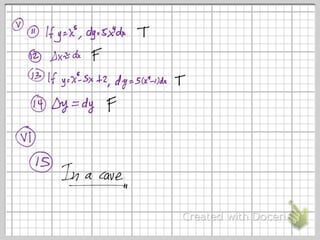 V
11 If y=x⁵, dy=5x⁴dx T
12. Δx=dx F
13. If y=x⁵-5x+2, dy=5(x⁴-1)dx T
14. Δy=dy F
VI
15
In a cave
Created with Doceri